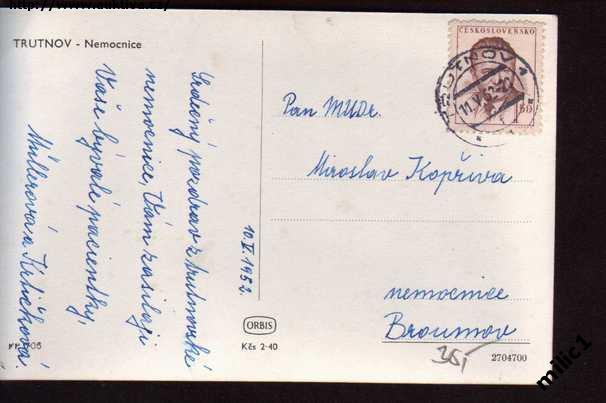 TRUTNOV - Nemocnice
Srdečný pozdrav z trutnovské
nemocnice, Vám zasílají
Vaše bývalé pacientky,
Müllerová a
10. V. 1952.
ORBIS
Kčs 2-40
ČESKOSLOVENSKO
TRUTNOV 1
Pan MUDr.
Miroslav Kopřiva
nemocnice
Broumov
35,-
2704700
milic1